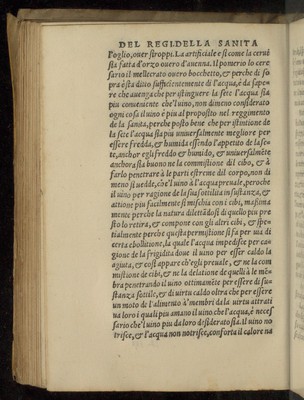 DEL REG. DELLA SANITA
l'oglio, over siroppi. La artificiale e si come la cervi
sia fatta d'orzo overo d'avenna. Il pomerio lo cere
sario il mellecrato overo bochetto, & perche di so
pra è sta ditto sufficientemente di l'acqua, è da sape-
re che avenga che per istinguere la sete l'acqua sia
piu conveniente che l'uino, non dimeno considerato
ogni cosa il uino è piu al proposito nel reggimento
de la sanita, perche posto bene che per istintione de
la sete l'acqua sia piu universalmente megliore per
essere fredda, & humida essendo l'appetito de la se-
te, anchor egli freddo & humido, & universalmẽte
anchora sia buono ne la commistione dil cibo, & à
farlo penetrare à le parti estreme dil corpo, non di
meno si uedde, che l'uino à l'acqua preuale, peroche
il uino per ragione de la sua sottilita in sustanza, &
attione piu facilmente si mischia con i cibi, masima
mente perche la natura dilettãdosi di quello piu pre
sto lo retira, & compone con gli altri cibi, & spe-
tialmente perche questa permistione si fa per uia di
certa ebollitione, la quale l'acqua impedisce per ca-
gione de la frigidita doue il uino per esser caldo la
agiuta, & cosi appare ch'egli preuale, & ne la com
mistione de cibi, & ne la delatione de quelli à le mẽ-
bra penetrando il uino ottimamẽte per essere di su-
stanza sottile, & di uirtu caldo oltra che per essere
un moto de l'alimento à membri da la uirtu attrati
ua loro i quali piu amano il uino che l'acqua, è neces
sario che l'uino piu da loro desiderato sia. Il uino no
trisce, & l'acqua non notrisce, conforta il calore na